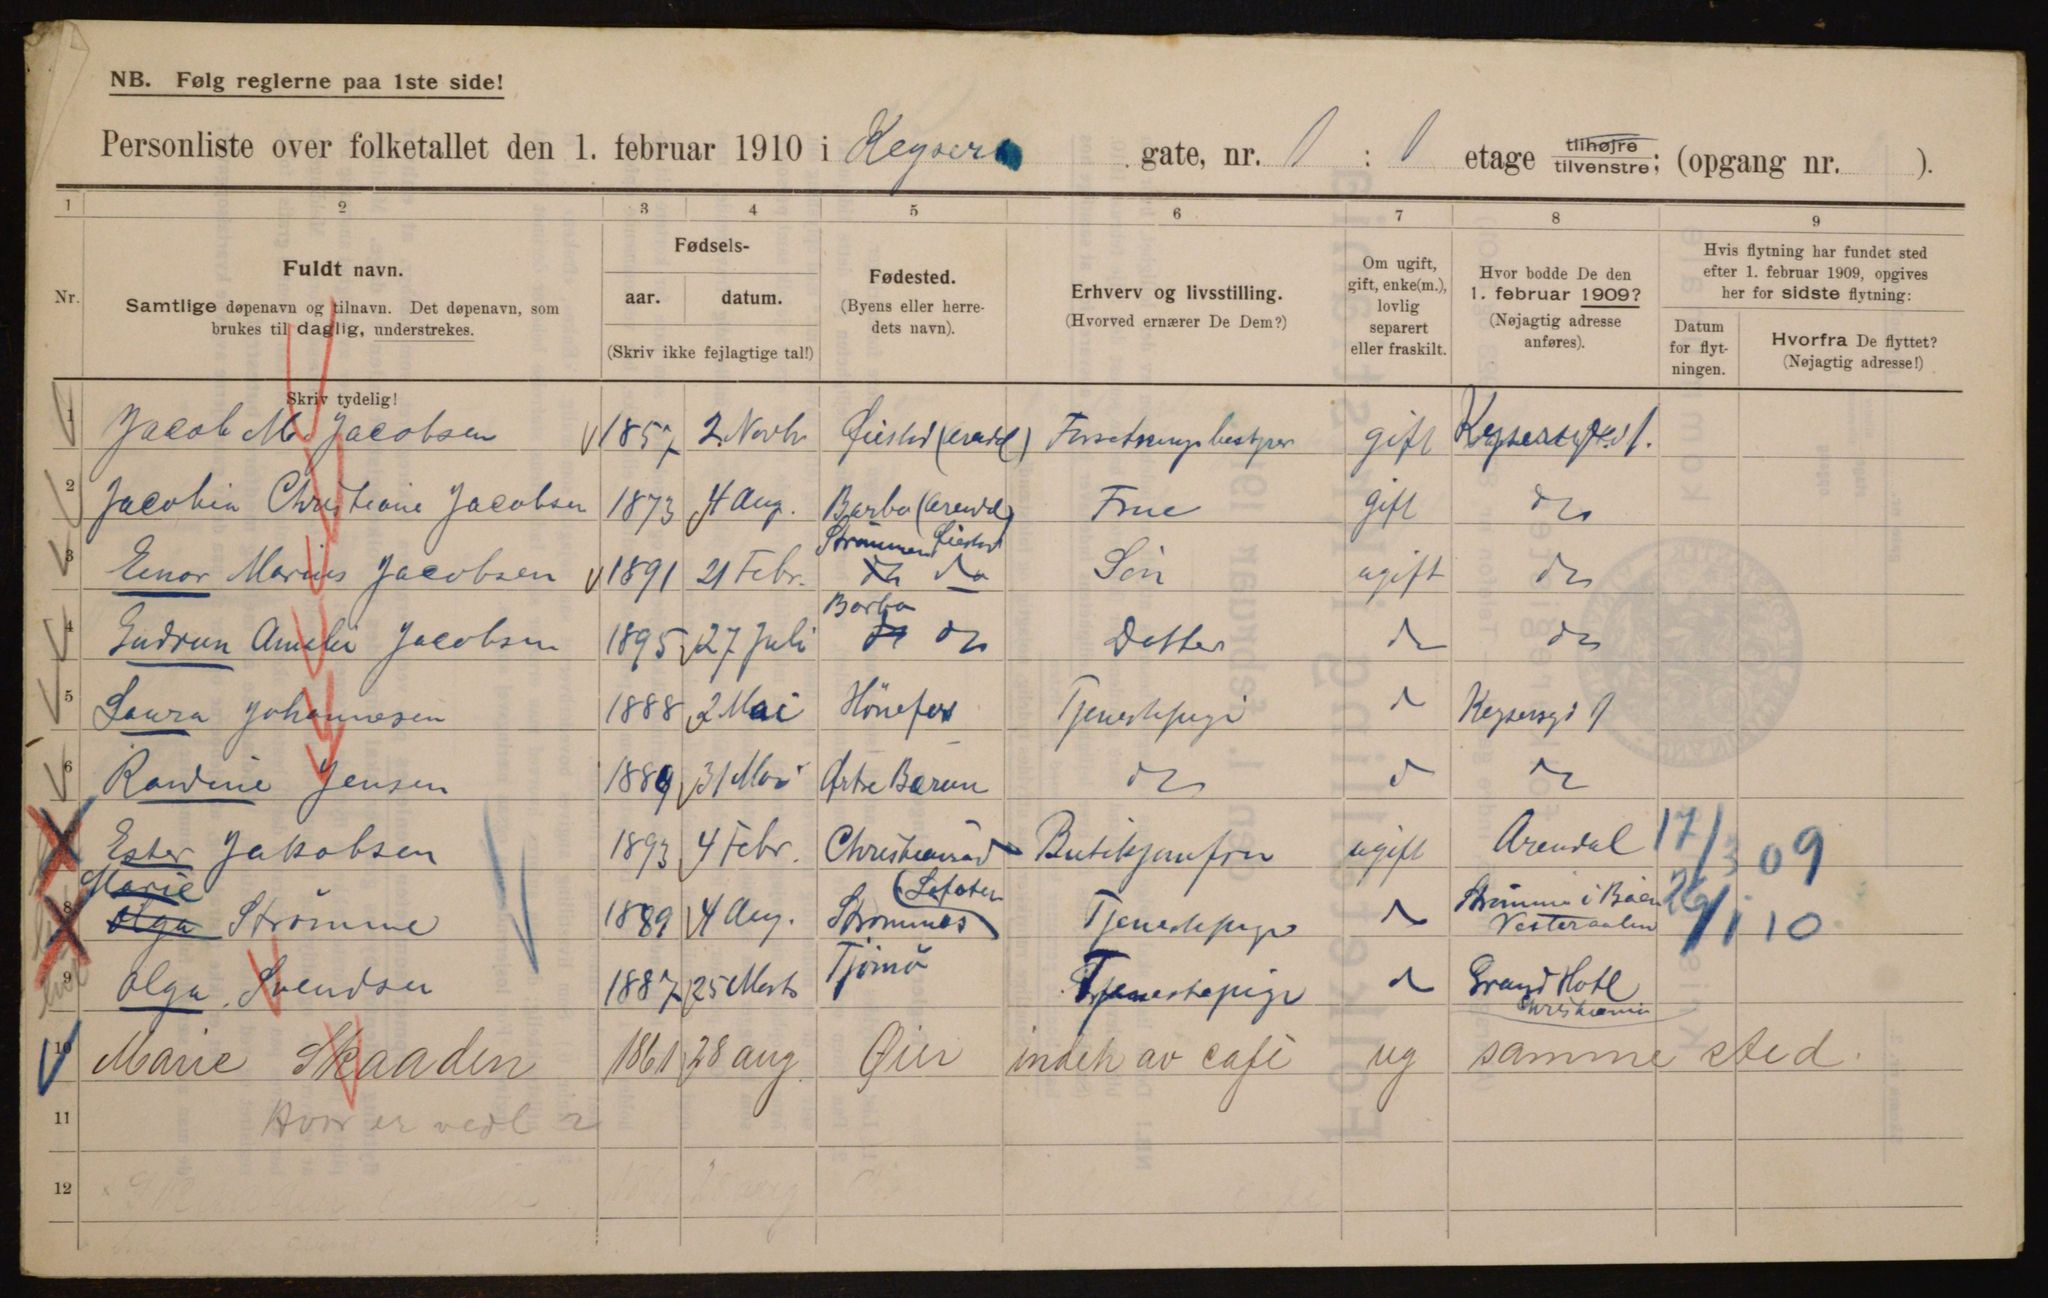 NB. Følg reglerne paa 1ste side!
Personliste over folketallet den 1. februar 1910 i Keysers gate, nr. 1 : 1 etage tilhøjre tilvenstre; (opgang nr. ).
1 2 3 4 5 6 7 8 9
Nr.
Fuldt navn.
Samtlige døpenavn og tilnavn. Det døpenavn, som
brukes til daglig, understrekes.
Skriv tydelig!
Fødsels-
aar. datum.
(Skriv ikke fejlagtige tal!)
Fødested.
(Byens eller herre-
dets navn).
Erhverv og livsstilling.
(Hvorved ernærer De Dem?)
Om ugift,
gift, enke(m.),
lovlig
separert
eller fraskilt.
Hvor bodde De den
1. februar 1909?
(Nøjagtig adresse
anføres).
Hvis flytning har fundet sted
efter 1. februar 1909, opgives
her for sidste flytning:
Datum
for flyt-
ningen.
Hvorfra De flyttet?
(Nøjagtig adresse!)
1 Jacob M. Jacobsen 1857 2 Novbr Øiestad (Arendl) Forretningsbestyrer gift Keysersgd 1.
2 Jacobin Christiane Jacobsen 1873 4 Aug. Barbo (Arendl) Frue gift do
Strømmen Øiestad
3 Einar Marius Jacobsen 1891 21 Febr. do do Søn ugift do
Barbo
4 Gudrun Amalie Jacobsen 1895 27 Juli do do Datter do do
5 Laura Johannesen 1888 2 Mai Hönefos Tjenestepige d Keysersgd 1
6 Randine Jensen 1889 31 Mai Østre Bærum do d do
7 Ester Jakobsen 1893 4 Febr. Christiansand Butikjomfru ugift Arendal 17/3 09
Marie
8 Olga Strømme 1889 4 Aug. Strømmes (Lofoten) Tjenestepige d Strømme i Bøen Vesteraalen 26/1 10
9 Olga Svendsen 1887 25 Marts Tjømø Tjenestepige d Grand Hotl
Christiania
10 Marie Skaaden 1861 28 aug Øier indeh av café ug samme sted.
11 Hvor er vedk ?
12